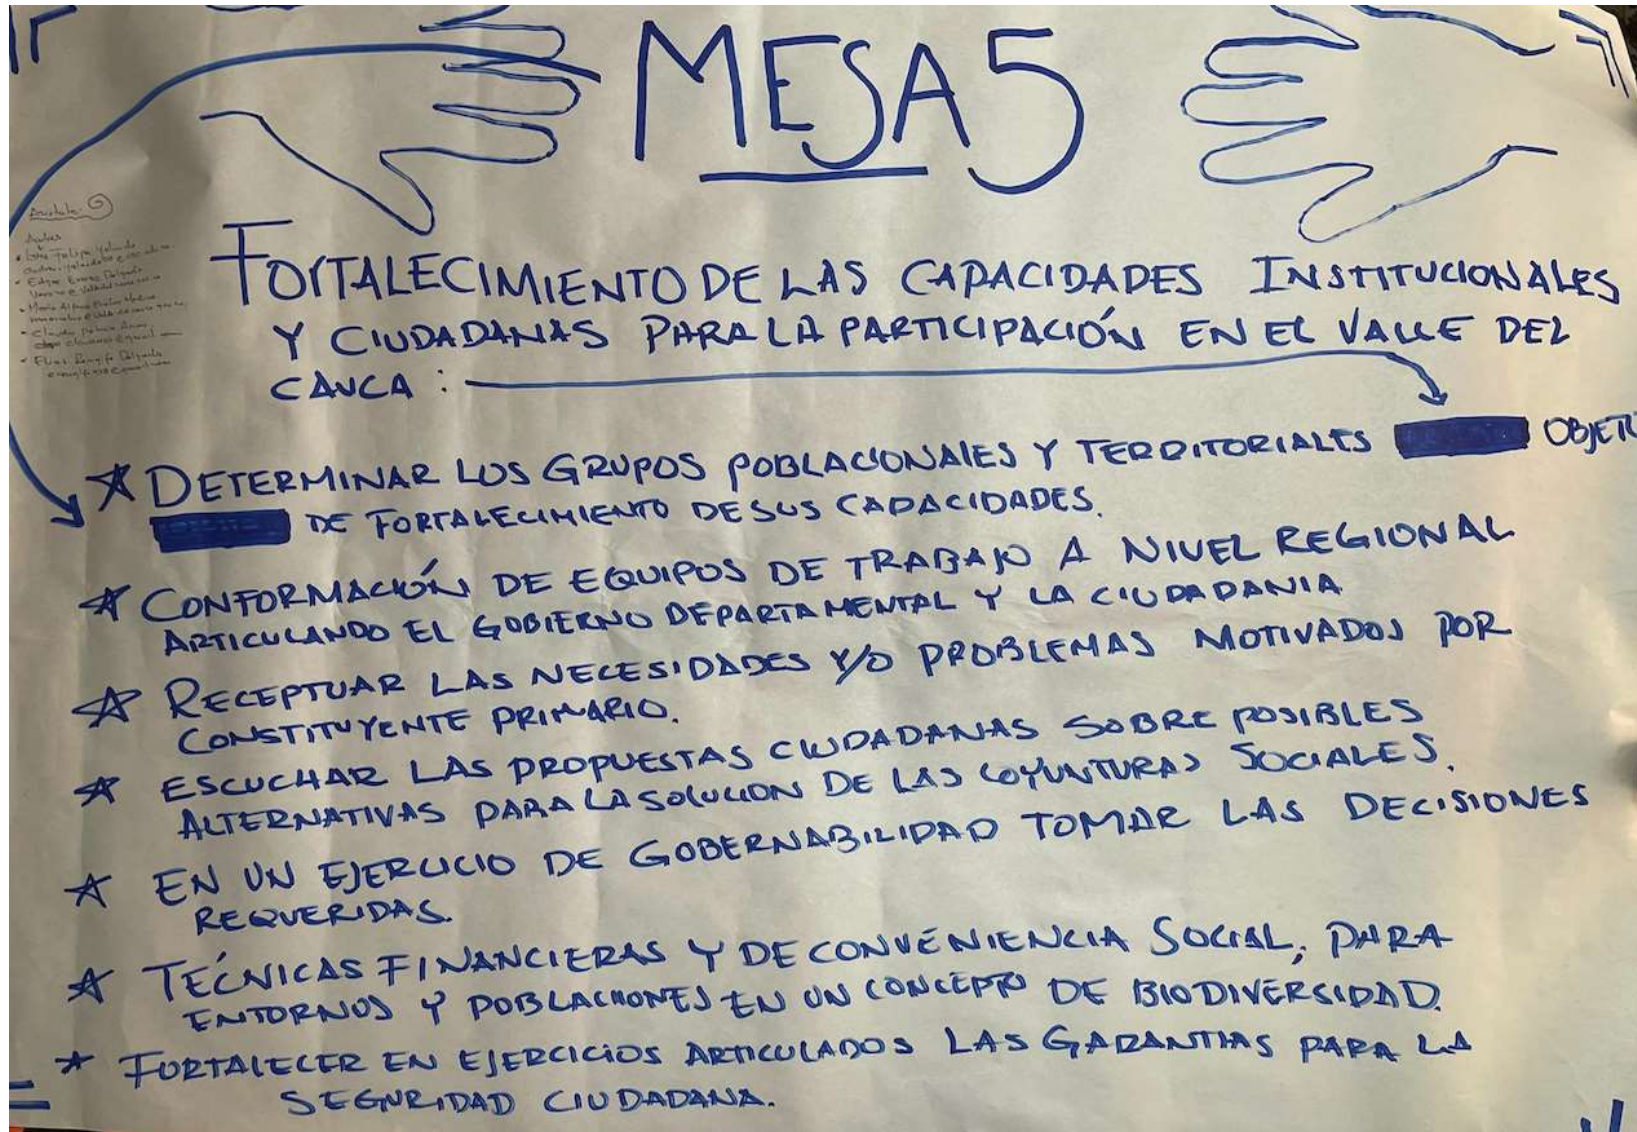 MESA 5
FORTALECIMIENTO DE LAS CAPACIDADES INSTITUCIONALES
Y CIUDADANAS PARA LA PARTICIPACIÓN EN EL VALLE DEL
CAUCA :
DETERMINAR LOS GRUPOS POBLACIONALES Y TERRITORIALES OBJETO
DE FORTALECIMIENTO DE SUS CAPACIDADES.
CONFORMACIÓN DE EQUIPOS DE TRABAJO A NIVEL REGIONAL
ARTICULANDO EL GOBIERNO DEPARTAMENTAL Y LA CIUDADANIA
RECEPTUAR LAS NECESIDADES Y/O PROBLEMAS MOTIVADOS POR
CONSTITUYENTE PRIMARIO.
ESCUCHAR LAS PROPUESTAS CIUDADANAS SOBRE POSIBLES
ALTERNATIVAS PARA LA SOLUCION DE LAS COYUNTURAS SOCIALES.
EN UN EJERCICIO DE GOBERNABILIDAD TOMAR LAS DECISIONES
REQUERIDAS.
TÉCNICAS FINANCIERAS Y DE CONVENIENCIA SOCIAL, PARA
ENTORNOS Y POBLACIONES EN UN CONCEPTO DE BIODIVERSIDAD.
FORTALECER EN EJERCICIOS ARTICULADOS LAS GARANTIAS PARA LA
SEGURIDAD CIUDADANA.